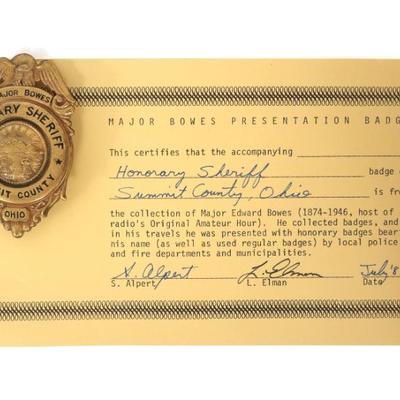 MAJOR BOWES
ARY SHERIFF
IT COUNTY
OHIO
MAJOR BOWES PRESENTATION BADG
This certifies that the accompanying
Honorary Sheriff badge
Summit County, Ohio is fr
the collection of Major Edward Bowes (1874-1946, host of
radio's Original Amateur Hour). He collected badges, and
in his travels he was presented with honorary badges bear
his name (as well as used regular badges) by local police
and fire departments and municipalities.
S. Alpert L. Elman July '8
S. Alpert L. Elman Date